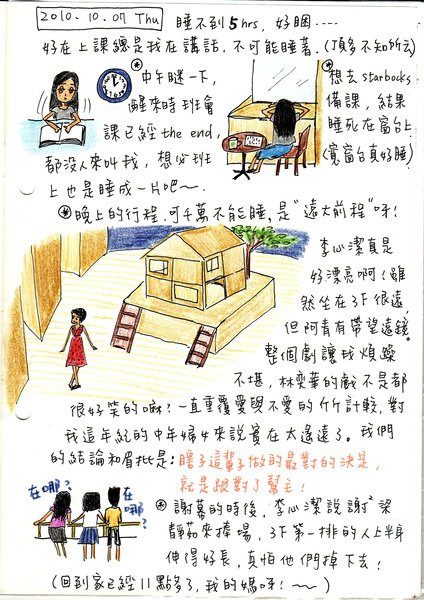 2010.10.07 Thu 睡不到5hrs, 好睏‥‥
好在上課總是我在講話, 不可能睡著. (頂多不知所云)
⊛中午瞇一下,
醒來時班會
課已經the end,
都沒人來叫我, 想必班
上也是睡成一片吧～.
⊛想去starbucks
備課, 結果
睡死在窗台上
(寬窗台真好睡)
⊛晚上的行程, 可千萬不能睡, 是"遠大前程"呀!
李心潔真是
好漂亮啊! 雖
然坐在3F很遠,
但阿青有帶望遠鏡.
整個劇讓我煩燥
不堪, 林奕華的戲不是都
很好笑的嘛? 一直重覆愛與不愛的竹竹計較, 對
我這年紀的中年婦女來說實在太遙遠了. 我們
的結論和眉批是: 瞎子這輩子做的最對的決定,
就是跟對了幫主!
在哪?
在哪?
⊛謝幕的時後, 李心潔說謝謝梁
靜茹來捧場, 3F第一排的人上半身
伸得好長, 真怕他們掉下去!
(回到家已經11點多了, 我的媽呀! ～～)